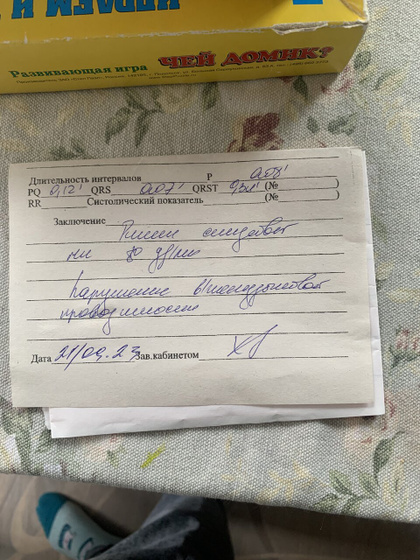 ИГРАЕМ И
Развивающая игра ЧЕЙ ДОМИК?
Длительность интервалов P 0,08'
PQ 0,12' QRS 0,07' QRST (№ )
RR Систолический показатель (№ )
Заключение Ритм
на уд/мин
Нарушение в/желудочковой
проводимости
Дата 21/09.23 Зав.кабинетом